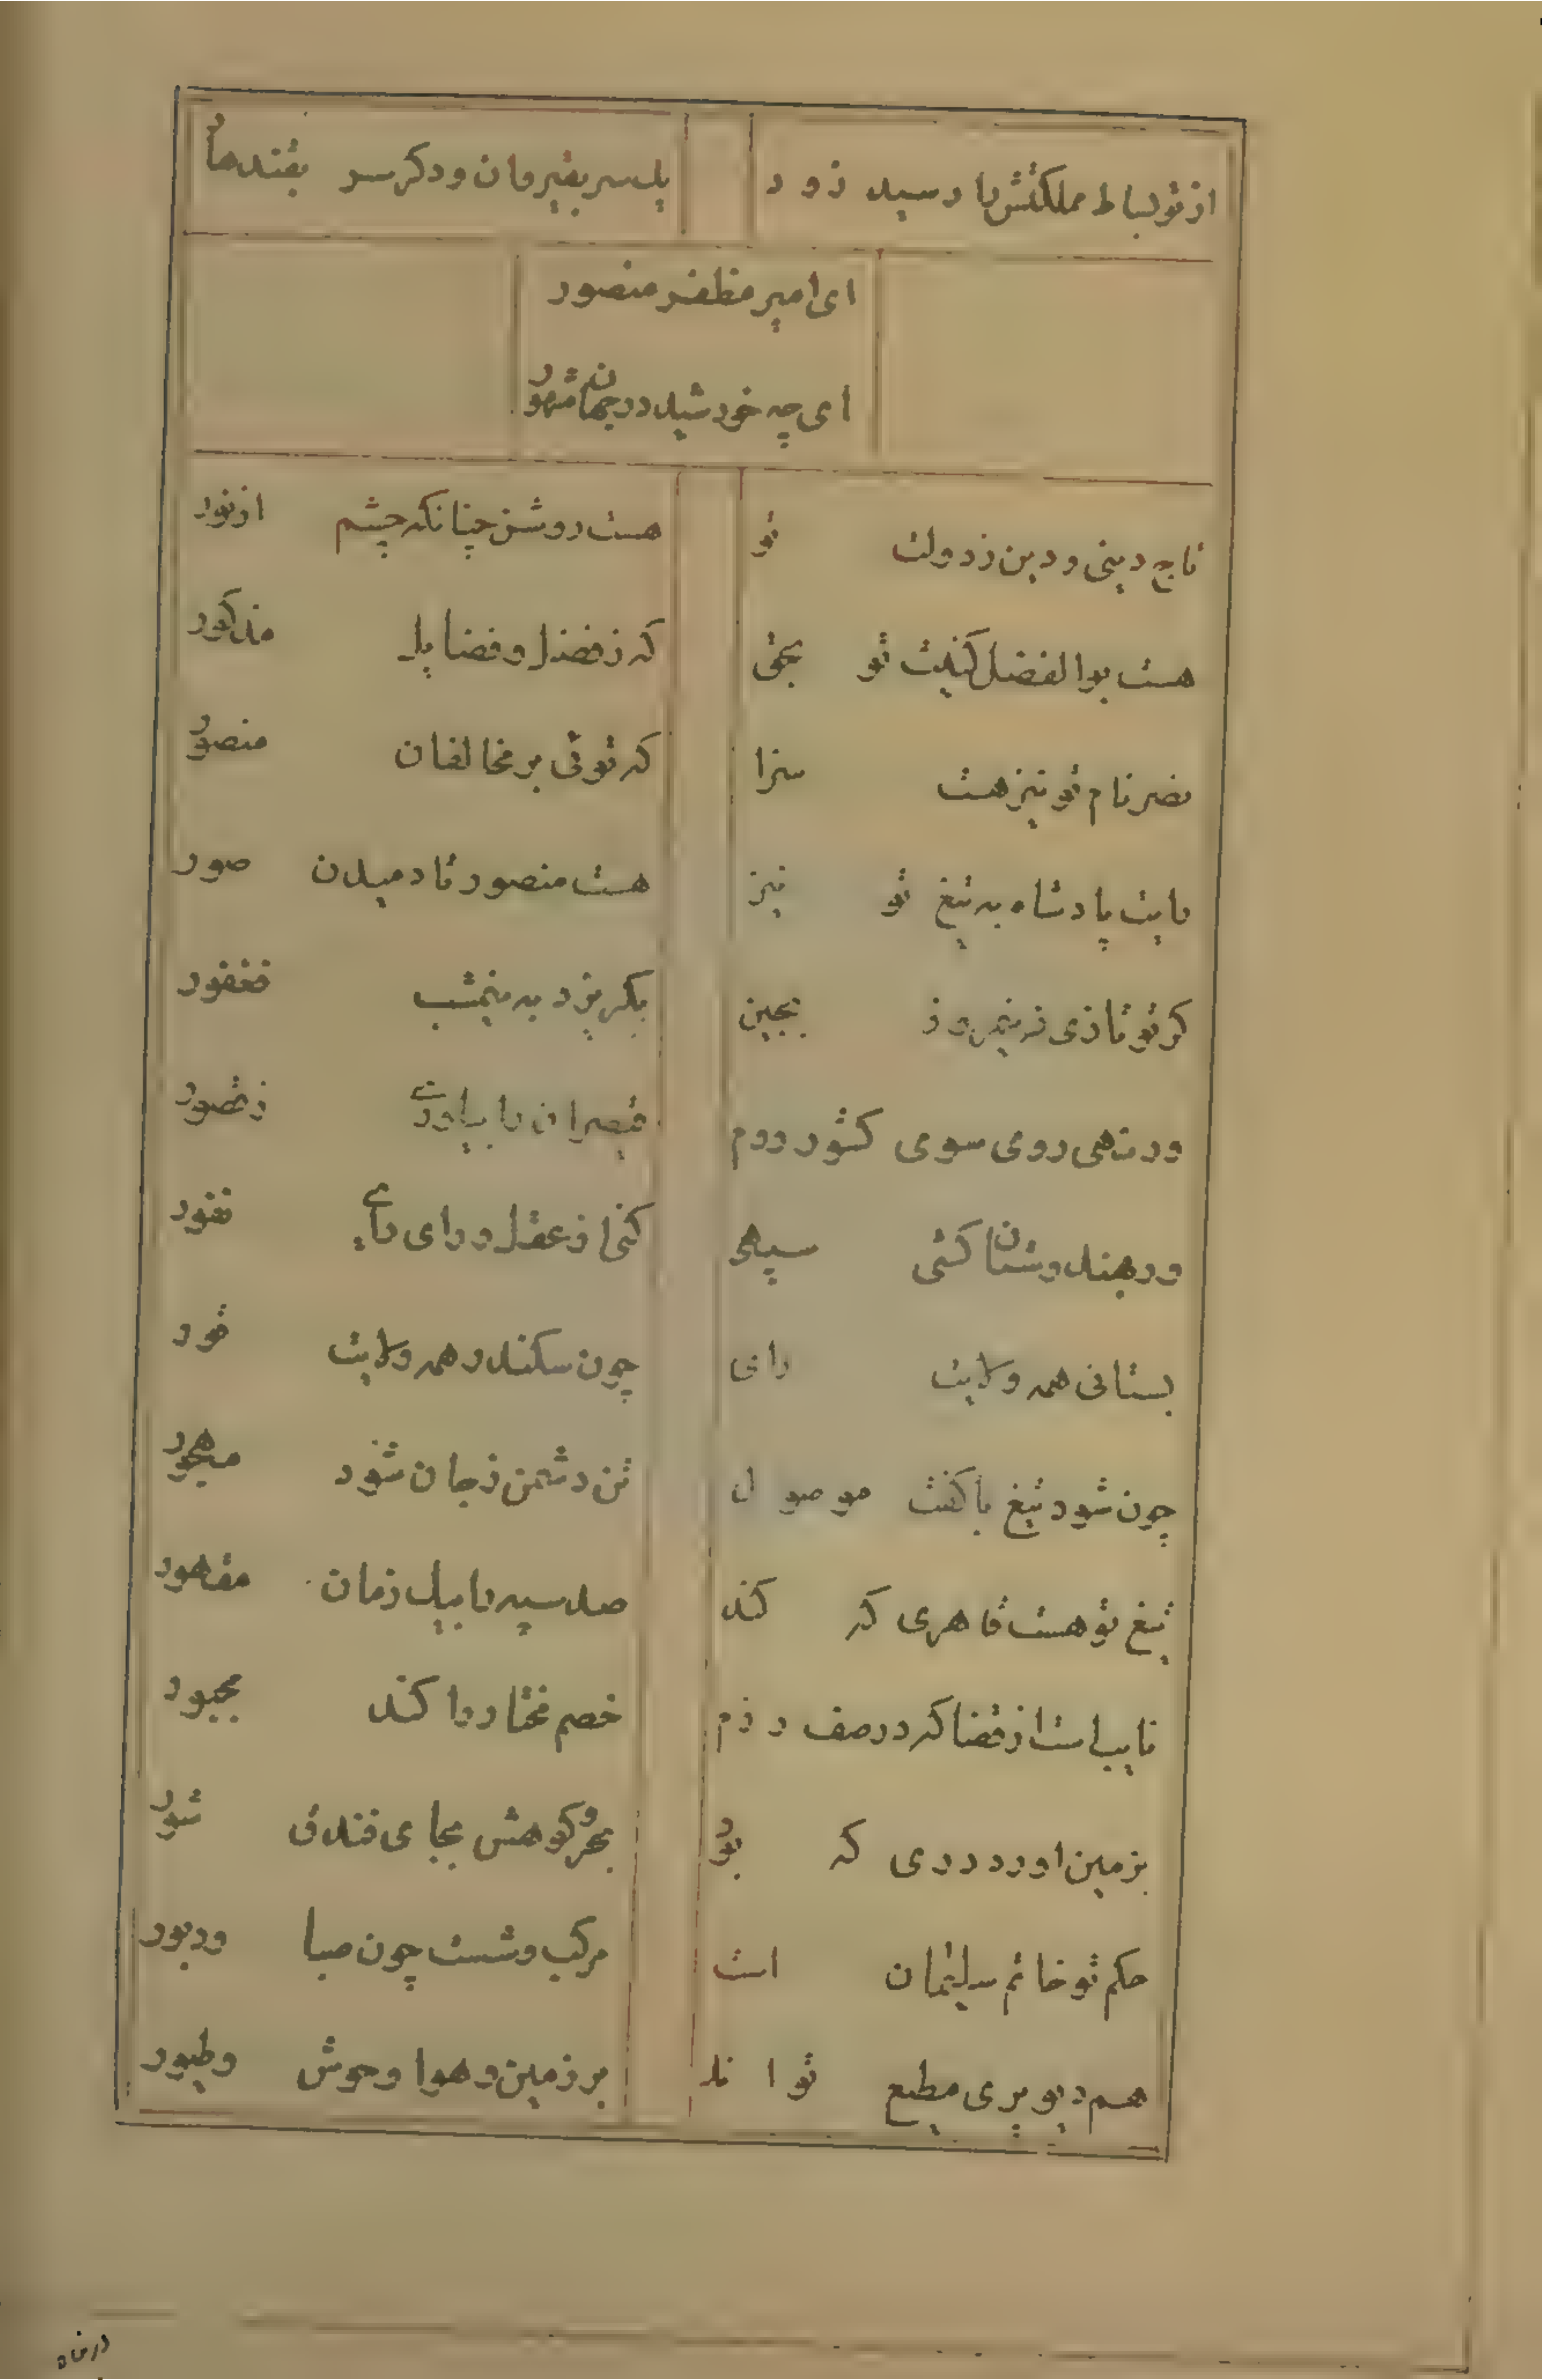 از تو بساط مملکتش با رسید زود
یک سر بقیروان و دگر سر بقندهار
ای امیر مظفر منصور
ای چه خورشید در جهان مشهور
تاج دینی و دین ز دولت تو
هست روشن چنانکه چشم از نور
هست بوالفضل کنیت تو بحق
که ز فضل و فضایل مذکور
نصر نام تو نیز هست سزا
که توئی بر مخالفان منصور
رایت پادشاه به تیغ تو نیز
هست منصور تا دمیدن صور
گر تو تازی ز نیمروز بچین
بگریزد به نیمشب فغفور
ور نهی روی سوی کشور روم
قیصران را بیاوری ز قصور
ور هندوستان کشی سپهی
کنی از عقل و رای رای نفور
بستانی همه ولایت رای
چون سکندر همه ولایت فور
چون شود تیغ با کفت موصول
تن دشمن ز جان شود مهجور
تیغ تو هست قاهری که کند
صد سپه را بیک زمان مقهور
نایب است از قضا که در صف رزم
خصم مختار را کند مجبور
بزمین اورد دری که بود
بحر و کوهش بجای خندق سور
حکم تو خاتم سلیمان است
مرکب وشست چون صبا و دبور
هم دیو پری مطیع تو اند
بر زمین و هوا وحوش و طیور